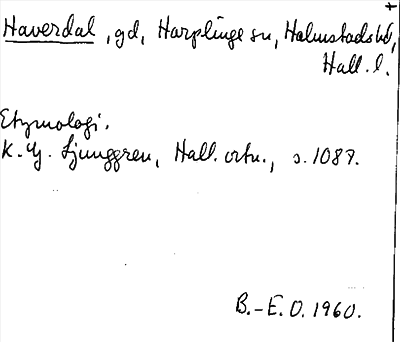 Haverdal, gd, Harplinge sn, Halmstads hd,
Hall. l.
Etymologi.
K. G. Ljunggren, Hall. ortn., s. 1087.
B.-E. O. 1960.